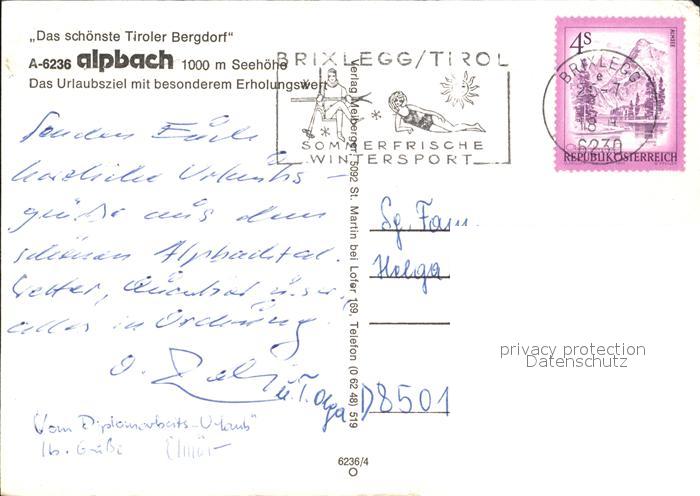 „Das schönste Tiroler Bergdorf"
A-6236 alpbach 1000 m Seehöhe
Das Urlaubsziel mit besonderem Erholungswert
BRIXLEGG/TIROL
SOMMERFRISCHE
WINTERSPORT
4S
ALMSEE
REPUBLIK ÖSTERREICH
BRIXLEGG
6230
Senden Euch
herzliche Urlaubs-
grüße aus dem
schönen Alpbachtal.
Wetter, Quartier u.s.w.
alles in Ordnung.
u.T. Olga
„Vom Diplomarbeits-Urlaub"
lb. Grüße Elmar
Verlag Meiberger, 5092 St. Martin bei Lofer 169, Telefon (0 62 48) 519
Sg. Fam.
Helga
D8501
privacy protection
Datenschutz
6236/4